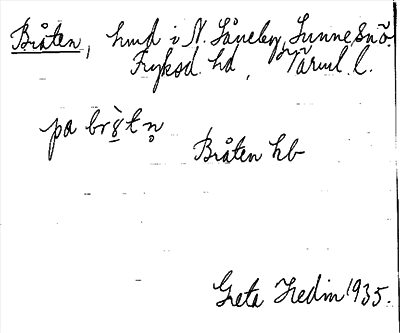 Bråten, hmd i N. Låneby, Sunne snö.
Fryksd. hd, Värml. l.
pa br
Bråten hb
Greta Hedin 1935.